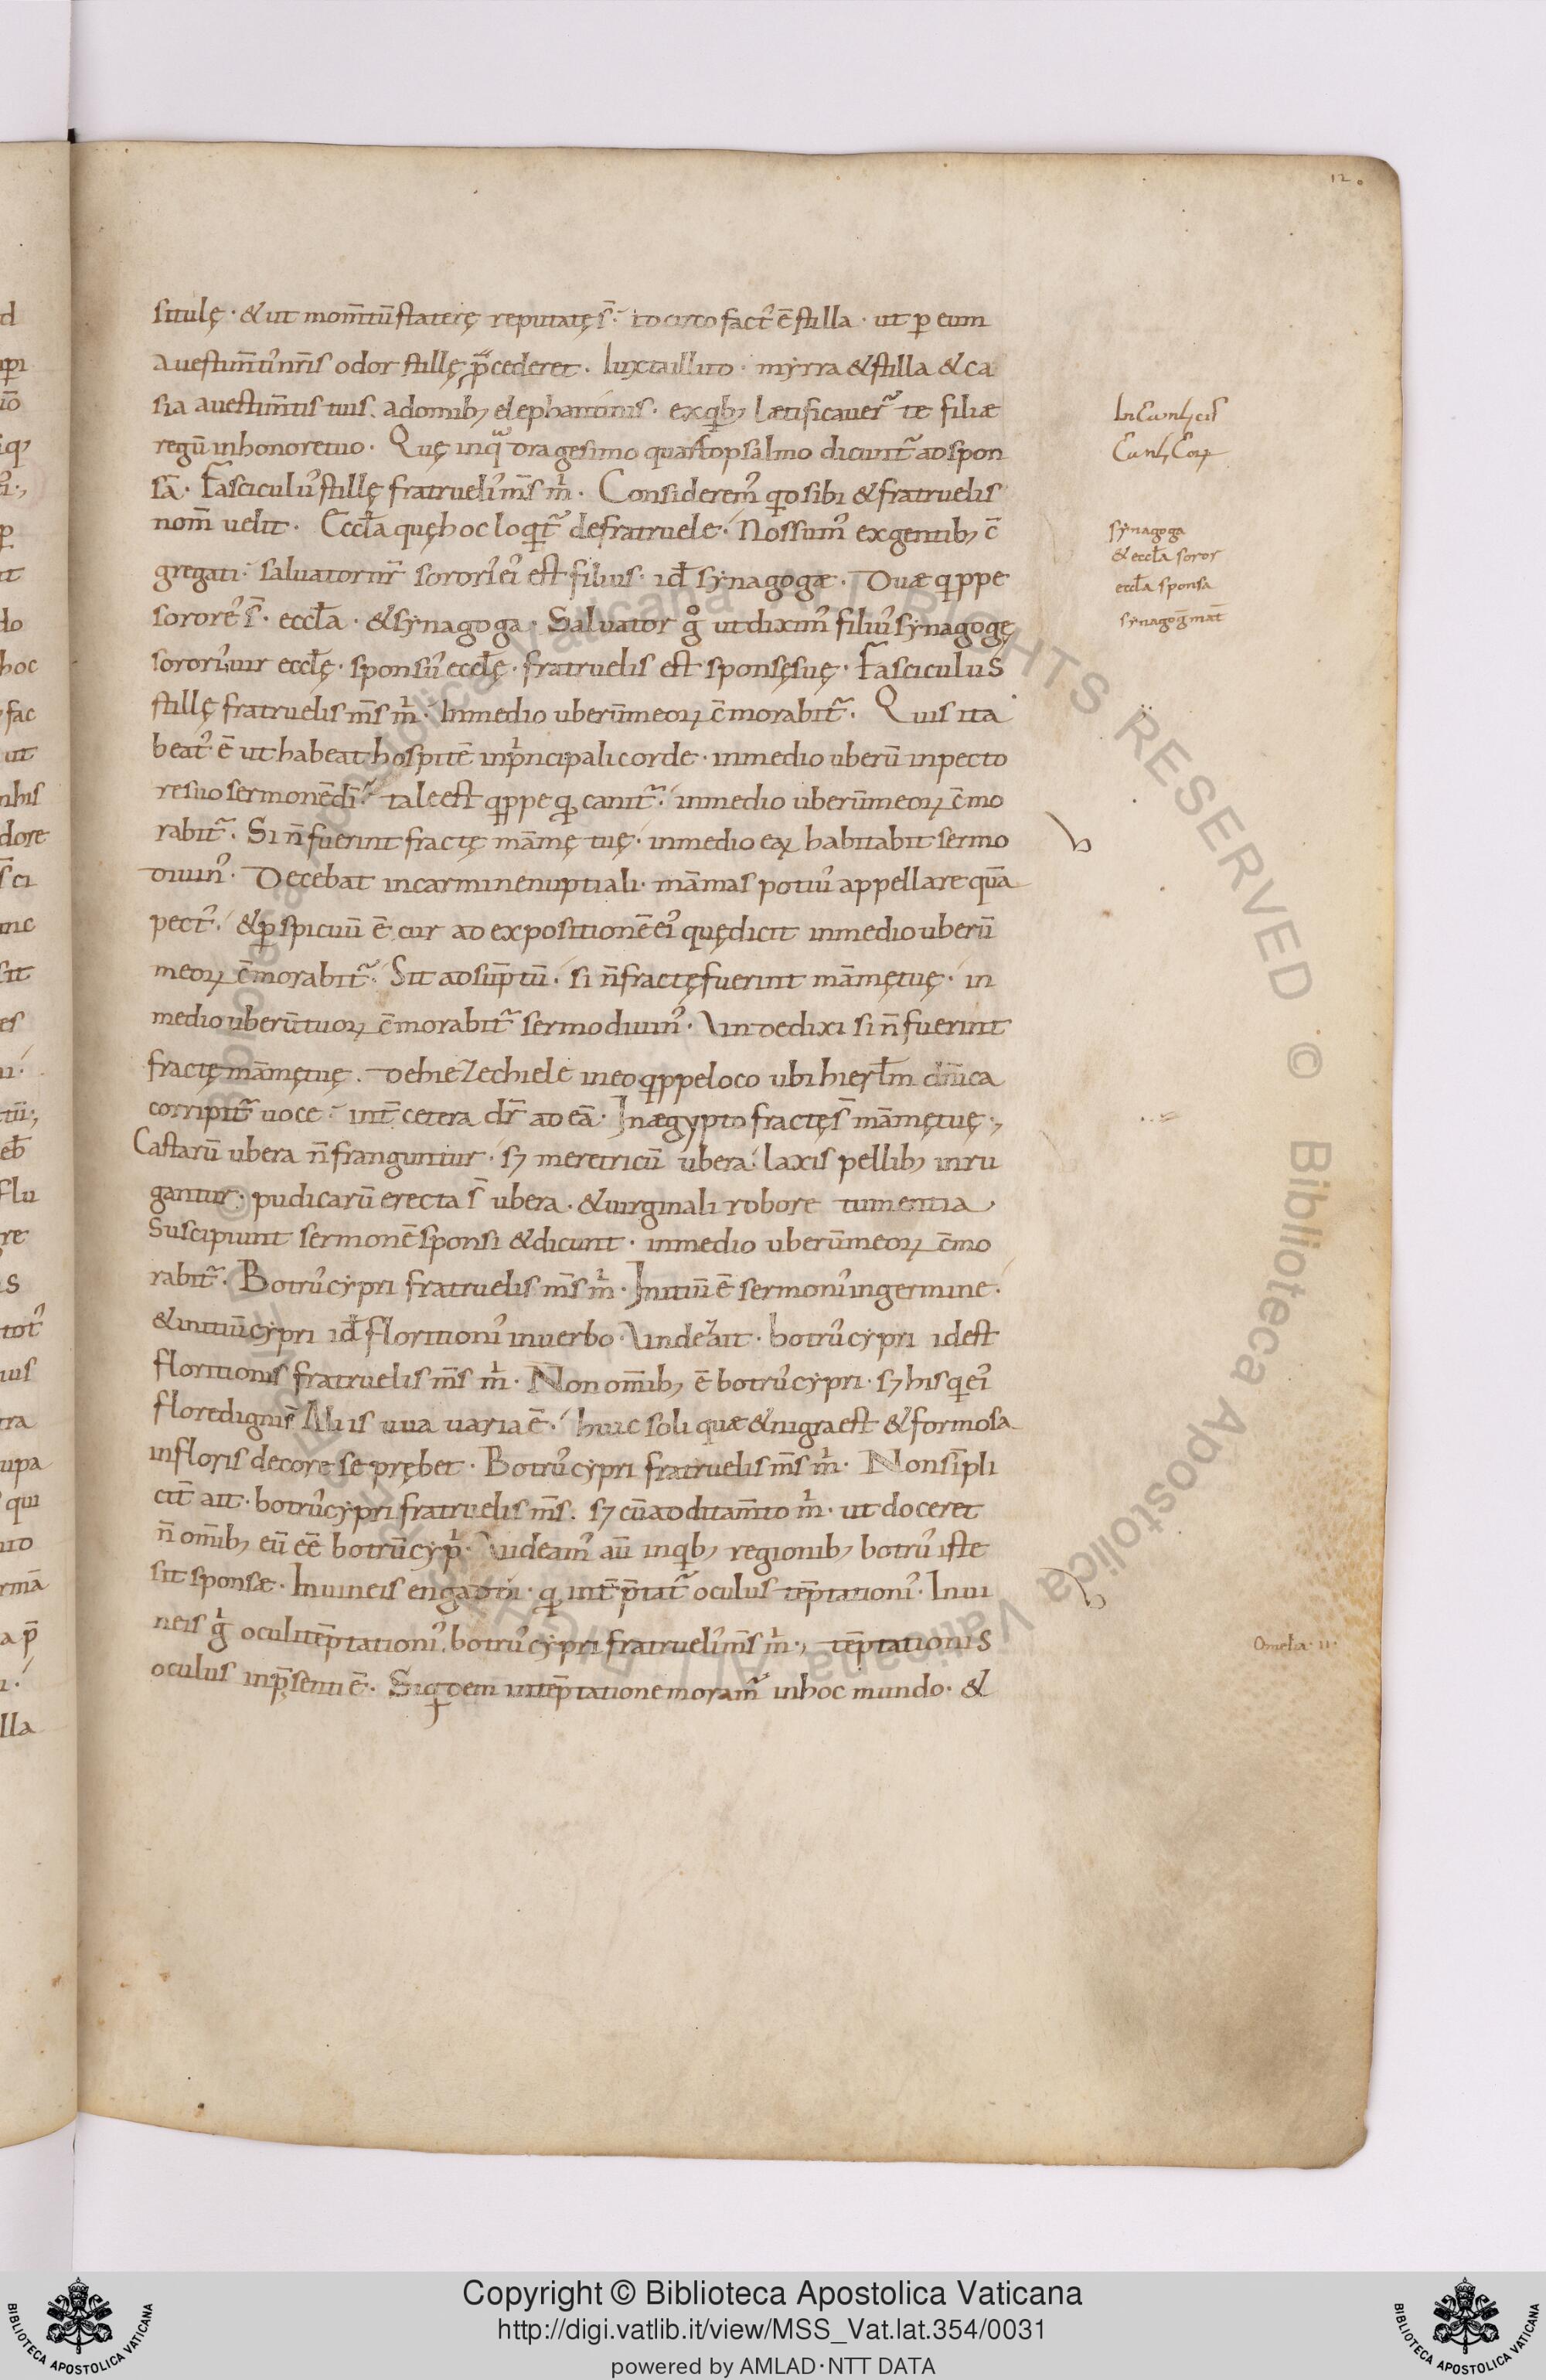 12.
situlę · & ut mom̄tū staterę reputatę s̄ · idcirco fact᾽ ē stilla · ut p eum
a uestim̄tis nr̄is odor stillę p̄cederet · Iuxta illud · myrra & stilla & ca
sia a uestim̄tis tuis. a domib; elephantinis · ex qib; lætificauer̄ te filiæ
regū in honore tuo · Quę in q͛dragesimo quarto psalmo dicunt̄ ad spon
sā · Fasciculus stillę fratruelis m̄s m̄ · Considerem᾽ qd sibi & fratruelis
nom̄ uelit · Eccl̄a quę hoc loqit̄ de fratruele · Nos sum᾽ ex gentib; c̄
gregati · saluator nr̄ sororis ei᾽ est filius · id̄ synagogæ · Duæ qppe
sorores s̄ · eccl̄a · & synagoga · Saluator g̊ ut dixim᾽ filius synagogę
sororis uir eccl̄ę · sponsus eccl̄ę · fratruelis est sponsę suę · Fasciculus
stillę fratruelis m̄s m̄ · In medio uberū meoꝝ c̄morabit̄ · Quis ita
beat᾽ ē ut habeat hospitē in pncipali corde · in medio uberū in pecto
re suo sermonē di̅ · tale est qppe qd canit̄ · in medio uberū meoꝝ c̄mo
rabit̄ · Si n̄ fuerint fractę māmę tuę · in medio eaꝝ habitabit sermo
diuin᾽ · Decebat in carmine nuptiali · māmas potius appellare quā
pect᾽ · & pspicuū ē cur ad expositionē ei᾽ quę dicit in medio uberū
meoꝝ c̄morabit̄ · Sit adsūptū · si n̄ fractę fuerint māmę tuę · in
medio uberū tuoꝝ c̄morabit̄ sermo diuin᾽ · Vnde dixi si n̄ fuerint
fractę māmę tuę · de hiezechiele in eo qppe loco ubi hierl̄m dn̄ica
corripit̄ uoce · int̄ cetera dr̄ ad eā · In ægypto fractę s̄ māmę tuę ·,
Castarū ubera n̄ franguntur · sꝫ meretricū ubera · laxis pellib; inru
gantur · pudicarū erecta s̄ ubera · & uirginali robore tumentia ·
Suscipiunt sermonē sponsi & dicunt · in medio uberū meoꝝ c̄mo
rabit̄ · Botrus cypri fratruelis m̄s m̄ · Initiū ē sermonis in germine ·
& initiū cypri id̄ floritionis in uerbo · Vnde ait · botrus cypri id est
floritionis fratruelis m̄s m̄ · Non om̄ib; ē botrus cypri · sꝫ his qi ei᾽
flore digni s̄ Aliis uua uaria ē · huic soli quæ & nigra est & formosa
in floris decore se prębet · Botrus cypri fratruelis m̄s m̄ · Non simpli
cit̄ ait · botrus cypri fratruelis m̄s · sꝫ cū additam̄to m̄ · ut doceret
n̄ om̄ib; eū eē botrū cypi · Videam᾽ aū in qib; regionib; botrus iste
sit sponsæ · In uineis engaddi · qd int̄p̄tat̄ oculus tēptationis · In ui
neis g̊ oculi tēptationis · botrus cypri fratruelis m̄s m̄ ·, tēptationis
oculus in p̄senti ē · Siqdem in tēptatione moram̄ in hoc mundo · &
synagoga
& eccl̄a soror
eccl̄a sponsa
synagog̅ mat̄
Omelia · II ·
Copyright © Biblioteca Apostolica Vaticana
http://digi.vatlib.it/view/MSS_Vat.lat.354/0031
powered by AMLAD·NTT DATA
BIBLIOTECA APOSTOLICA VATICANA
BIBLIOTECA APOSTOLICA VATICANA